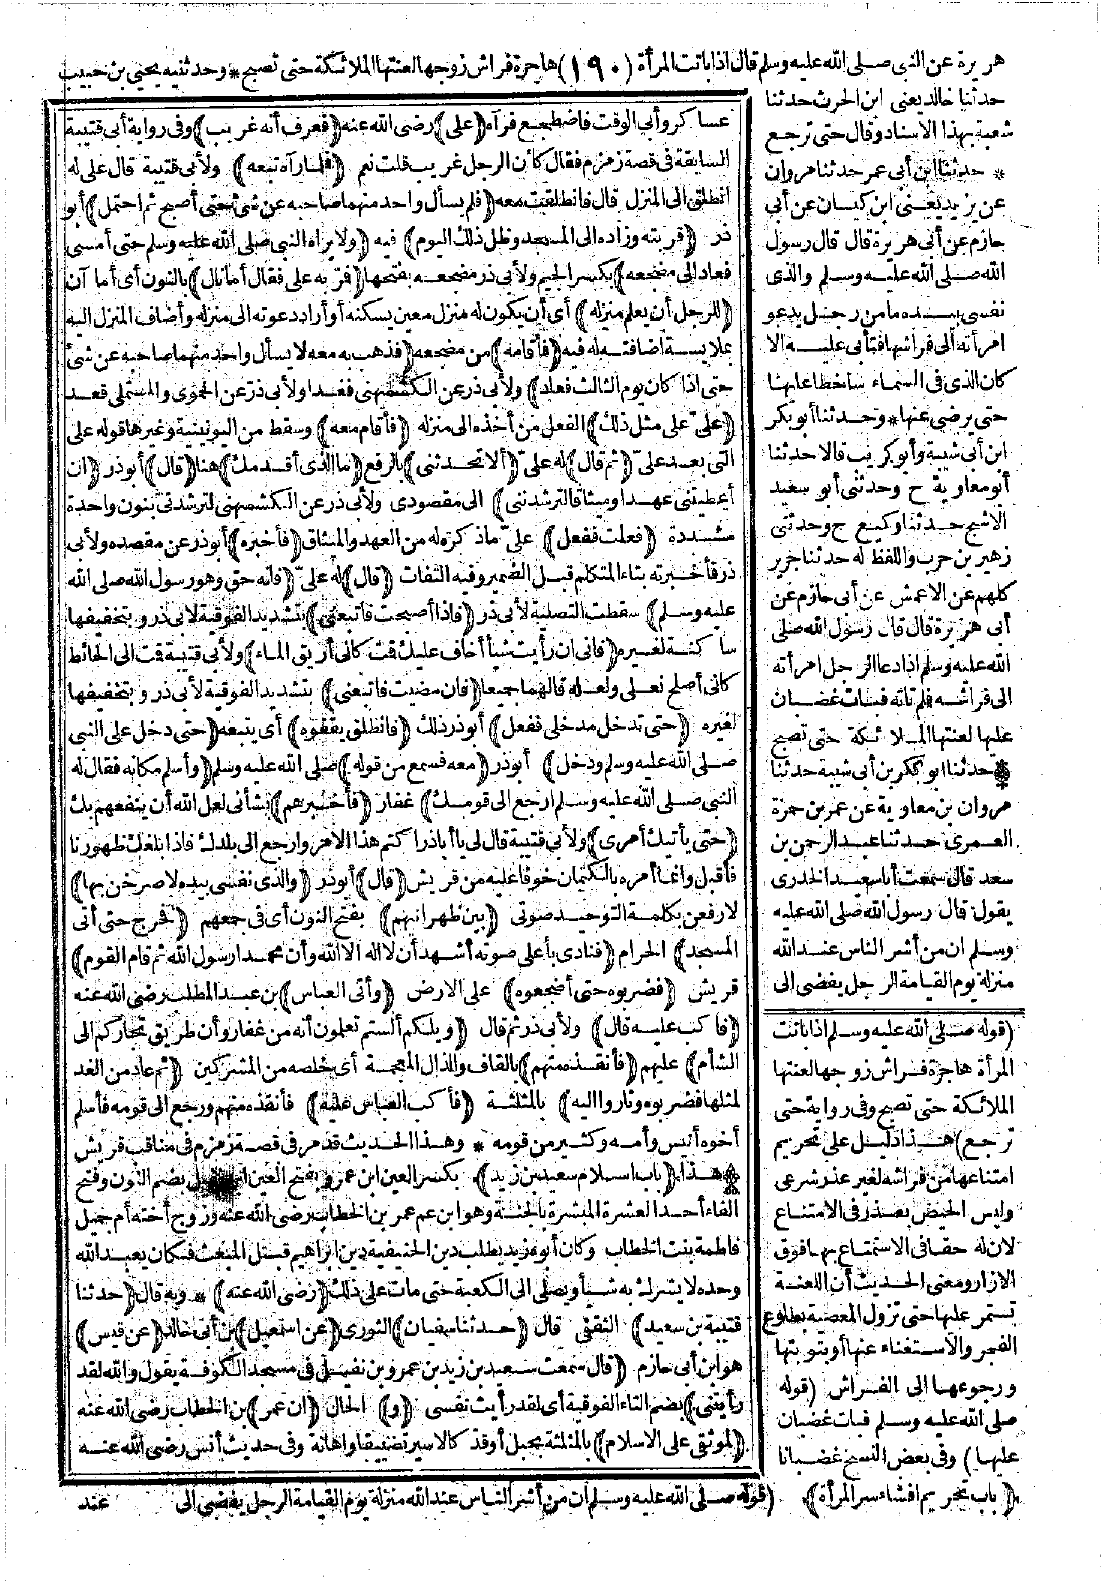 هريرة عن النبي صلى الله عليه وسلم قال اذا باتت المرأة (١٩٠) هاجرة فراش زوجها لعنتها الملائكة حتى تصبح * وحدثنيه يحيى بن حبيب
حدثنا خالد يعنى ابن الحرث حدثنا
شعبة بهذا الاسناد وقال حتى ترجع
* حدثنا ابن أبى عمر حدثنا مروان
عن يزيد يعنى ابن كيسان عن أبى
حازم عن أبى هريرة قال قال رسول
الله صلى الله عليه وسلم والذى
نفسى بيده ما من رجل يدعو
امرأته الى فراشها فتأبى عليه الا
كان الذى فى السماء ساخطا عليها
حتى يرضى عنها * وحدثنا أبو بكر
ابن أبى شيبة وأبو كريب قالا حدثنا
أبو معاوية ح وحدثنى أبو سعيد
الاشج حدثنا وكيع ح وحدثنى
زهير بن حرب واللفظ له حدثنا جرير
كلهم عن الاعمش عن أبى حازم عن
أبى هريرة قال قال رسول الله صلى
الله عليه وسلم اذا دعا الرجل امرأته
الى فراشه فلم تأته فبات غضبان
عليها لعنتها الملائكة حتى تصبح
* حدثنا أبو بكر بن أبى شيبة حدثنا
مروان بن معاوية عن عمر بن حمزة
العمرى حدثنا عبد الرحمن بن
سعد قال سمعت أبا سعيد الخدرى
يقول قال رسول الله صلى الله عليه
وسلم ان من أشر الناس عند الله
منزلة يوم القيامة الرجل يفضى الى
(قوله صلى الله عليه وسلم اذا باتت
المرأة هاجرة فراش زوجها لعنتها
الملائكة حتى تصبح وفى رواية حتى
ترجع) هذا دليل على تحريم
امتناعها من فراشه لغير عذر شرعى
وليس الحيض بعذر فى الامتناع
لان له حقا فى الاستمتاع بها فوق
الازار ومعنى الحديث أن اللعنة
تستمر عليها حتى تزول المعصية بطلوع
الفجر والاستغناء عنها أو بتوبتها
ورجوعها الى الفراش (قوله
صلى الله عليه وسلم فبات غضبان
عليها) وفى بعض النسخ غضبانا
(باب تحريم افشاء سر المرأة)
(قوله صلى الله عليه وسلم أن من أشر الناس عند الله منزلة يوم القيامة الرجل يفضى الى عند
عساكر وأبى الوقت فاضطجع فرآه (على) رضى الله عنه (فعرف أنه غريب) وفى رواية أبى قتيبة
السابقة فى قصة زمزم فقال كأن الرجل غريب قلت نعم (فلما رآه تبعه) ولأبى قتيبة قال على له
انطلق الى المنزل قال فانطلقت معه (فلم يسأل واحد منهما صاحبه عن شئ حتى أصبح ثم احتمل) أبو
ذر (قربته وزاده الى المسجد وظل ذلك اليوم) فيه (ولا يراه النبى صلى الله عليه وسلم حتى أمسى
فعاد الى مضجعه) بكسر الجيم ولأبى ذر مضجعه بفتحها (فمر به على فقال أما نال) بالنون أى أما آن
(للرجل أن يعلم منزله) أى أن يكون له منزل معين يسكنه أو أراد دعوته الى منزله وأضاف المنزل اليه
بملابسة اضافته له فيه (فأقامه) من مضجعه (فذهب به معه لا يسأل واحد منهما صاحبه عن شئ
حتى اذا كان يوم الثالث فعاد) ولأبى ذر عن الكشمهنى فغدا ولأبى ذر عن الحموى والمستملى قعد
(على على مثل ذلك) الفعل من أخذه الى منزله (فأقام معه) وسقط من اليونينية وغيرها قوله على
التى بعد على (ثم قال) له على (ألا تحدثنى) بالرفع (ما الذى أقدمك) هنا (قال) أبو ذر (ان
أعطيتنى عهدا وميثاقا لترشدننى) الى مقصودى ولأبى ذر عن الكشمهنى لترشدنى بنون واحدة
مشددة (فعلت ففعل) على ما ذكره له من العهد والميثاق (فأخبره) أبو ذر عن مقصده ولأبى
ذر فأخبرته بتاء المتكلم قبل الضمير وفيه التفات (قال) له على (فانه حق وهو رسول الله صلى الله
عليه وسلم) سقطت التصلية لأبى ذر (فاذا أصبحت فاتبعنى) بتشديد الفوقية لابى ذر وبتخفيفها
ساكنة لغيره (فانى ان رأيت شيأ أخاف عليك قمت كأنى أريق الماء) ولأبى قتيبة قمت الى الحائط
كأنى أصلح نعلى ولعله قالهما جميعا (فان مضيت فاتبعنى) بتشديد الفوقية لأبى ذر وبتخفيفها
لغيره (حتى تدخل مدخلى ففعل) أبو ذر ذلك (فانطلق يقفوه) أى يتبعه (حتى دخل على النبى
صلى الله عليه وسلم ودخل) أبو ذر (معه فسمع من قوله) صلى الله عليه وسلم (وأسلم مكانه فقال له
النبى صلى الله عليه وسلم ارجع الى قومك) غفار (فأخبرهم) بشأنى لعل الله أن ينفعهم بك
(حتى يأتيك أمرى) ولأبى قتيبة قال لى يا أبا ذر اكتم هذا الامر وارجع الى بلدك فاذا بلغك ظهورنا
فأقبل وانما أمره بالكتمان خوفا عليه من قريش (قال) أبو ذر (والذى نفسى بيده لاصرخن بها)
لارفعن بكلمة التوحيد صوتى (بين ظهرانيهم) بفتح النون أى فى جمعهم (فخرج حتى أتى
المسجد) الحرام (فنادى بأعلى صوته أشهد أن لا اله الا الله وأن محمدا رسول الله ثم قام القوم)
قريش (فضربوه حتى أضجعوه) على الارض (وأتى العباس) بن عبد المطلب رضى الله عنه
(فأكب عليه قال) ولأبى ذر ثم قال (ويلكم ألستم تعلمون أنه من غفار وأن طريق تجاركم الى
الشأم) عليهم (فأنقذه منهم) بالقاف والذال المعجمة أى خلصه من المشركين (ثم عاد من الغد
لمثلها فضربوه وثاروا اليه) بالمثلثة (فأكب العباس عليه) فأنقذه منهم ورجع الى قومه فأسلم
أخوه أنيس وأمه وكثير من قومه * وهذا الحديث قد مر فى قصة زمزم فى مناقب قريش
* هذا (باب اسلام سعيد بن زيد) بكسر العين ابن عمرو بفتح العين ابن نفيل بضم النون وفتح
الفاء أحد العشرة المبشرة بالجنة وهو ابن عم عمر بن الخطاب رضى الله عنه وزوج أخته أم جميل
فاطمة بنت الخطاب وكان أبوه زيد يطلب دين الحنيفية دين ابراهيم قبل المبعث فكان يعبد الله
وحده لا يشرك به شيأ ويصلى الى الكعبة حتى مات على ذلك (رضى الله عنه) * وبه قال (حدثنا
قتيبة بن سعيد) الثقفى قال (حدثنا سفيان) الثورى (عن اسمعيل) بن أبى خالد (عن قيس)
هو ابن أبى حازم (قال سمعت سعيد بن زيد بن عمرو بن نفيل فى مسجد الكوفة يقول والله لقد
رأيتنى) بضم التاء الفوقية أى لقد رأيت نفسى (و) الحال (ان عمر) بن الخطاب رضى الله عنه
(لموثقى على الاسلام) بالمثلثة بحبل أو قد كالاسير تضييقا واهانة وفى حديث أنس رضى الله عنه